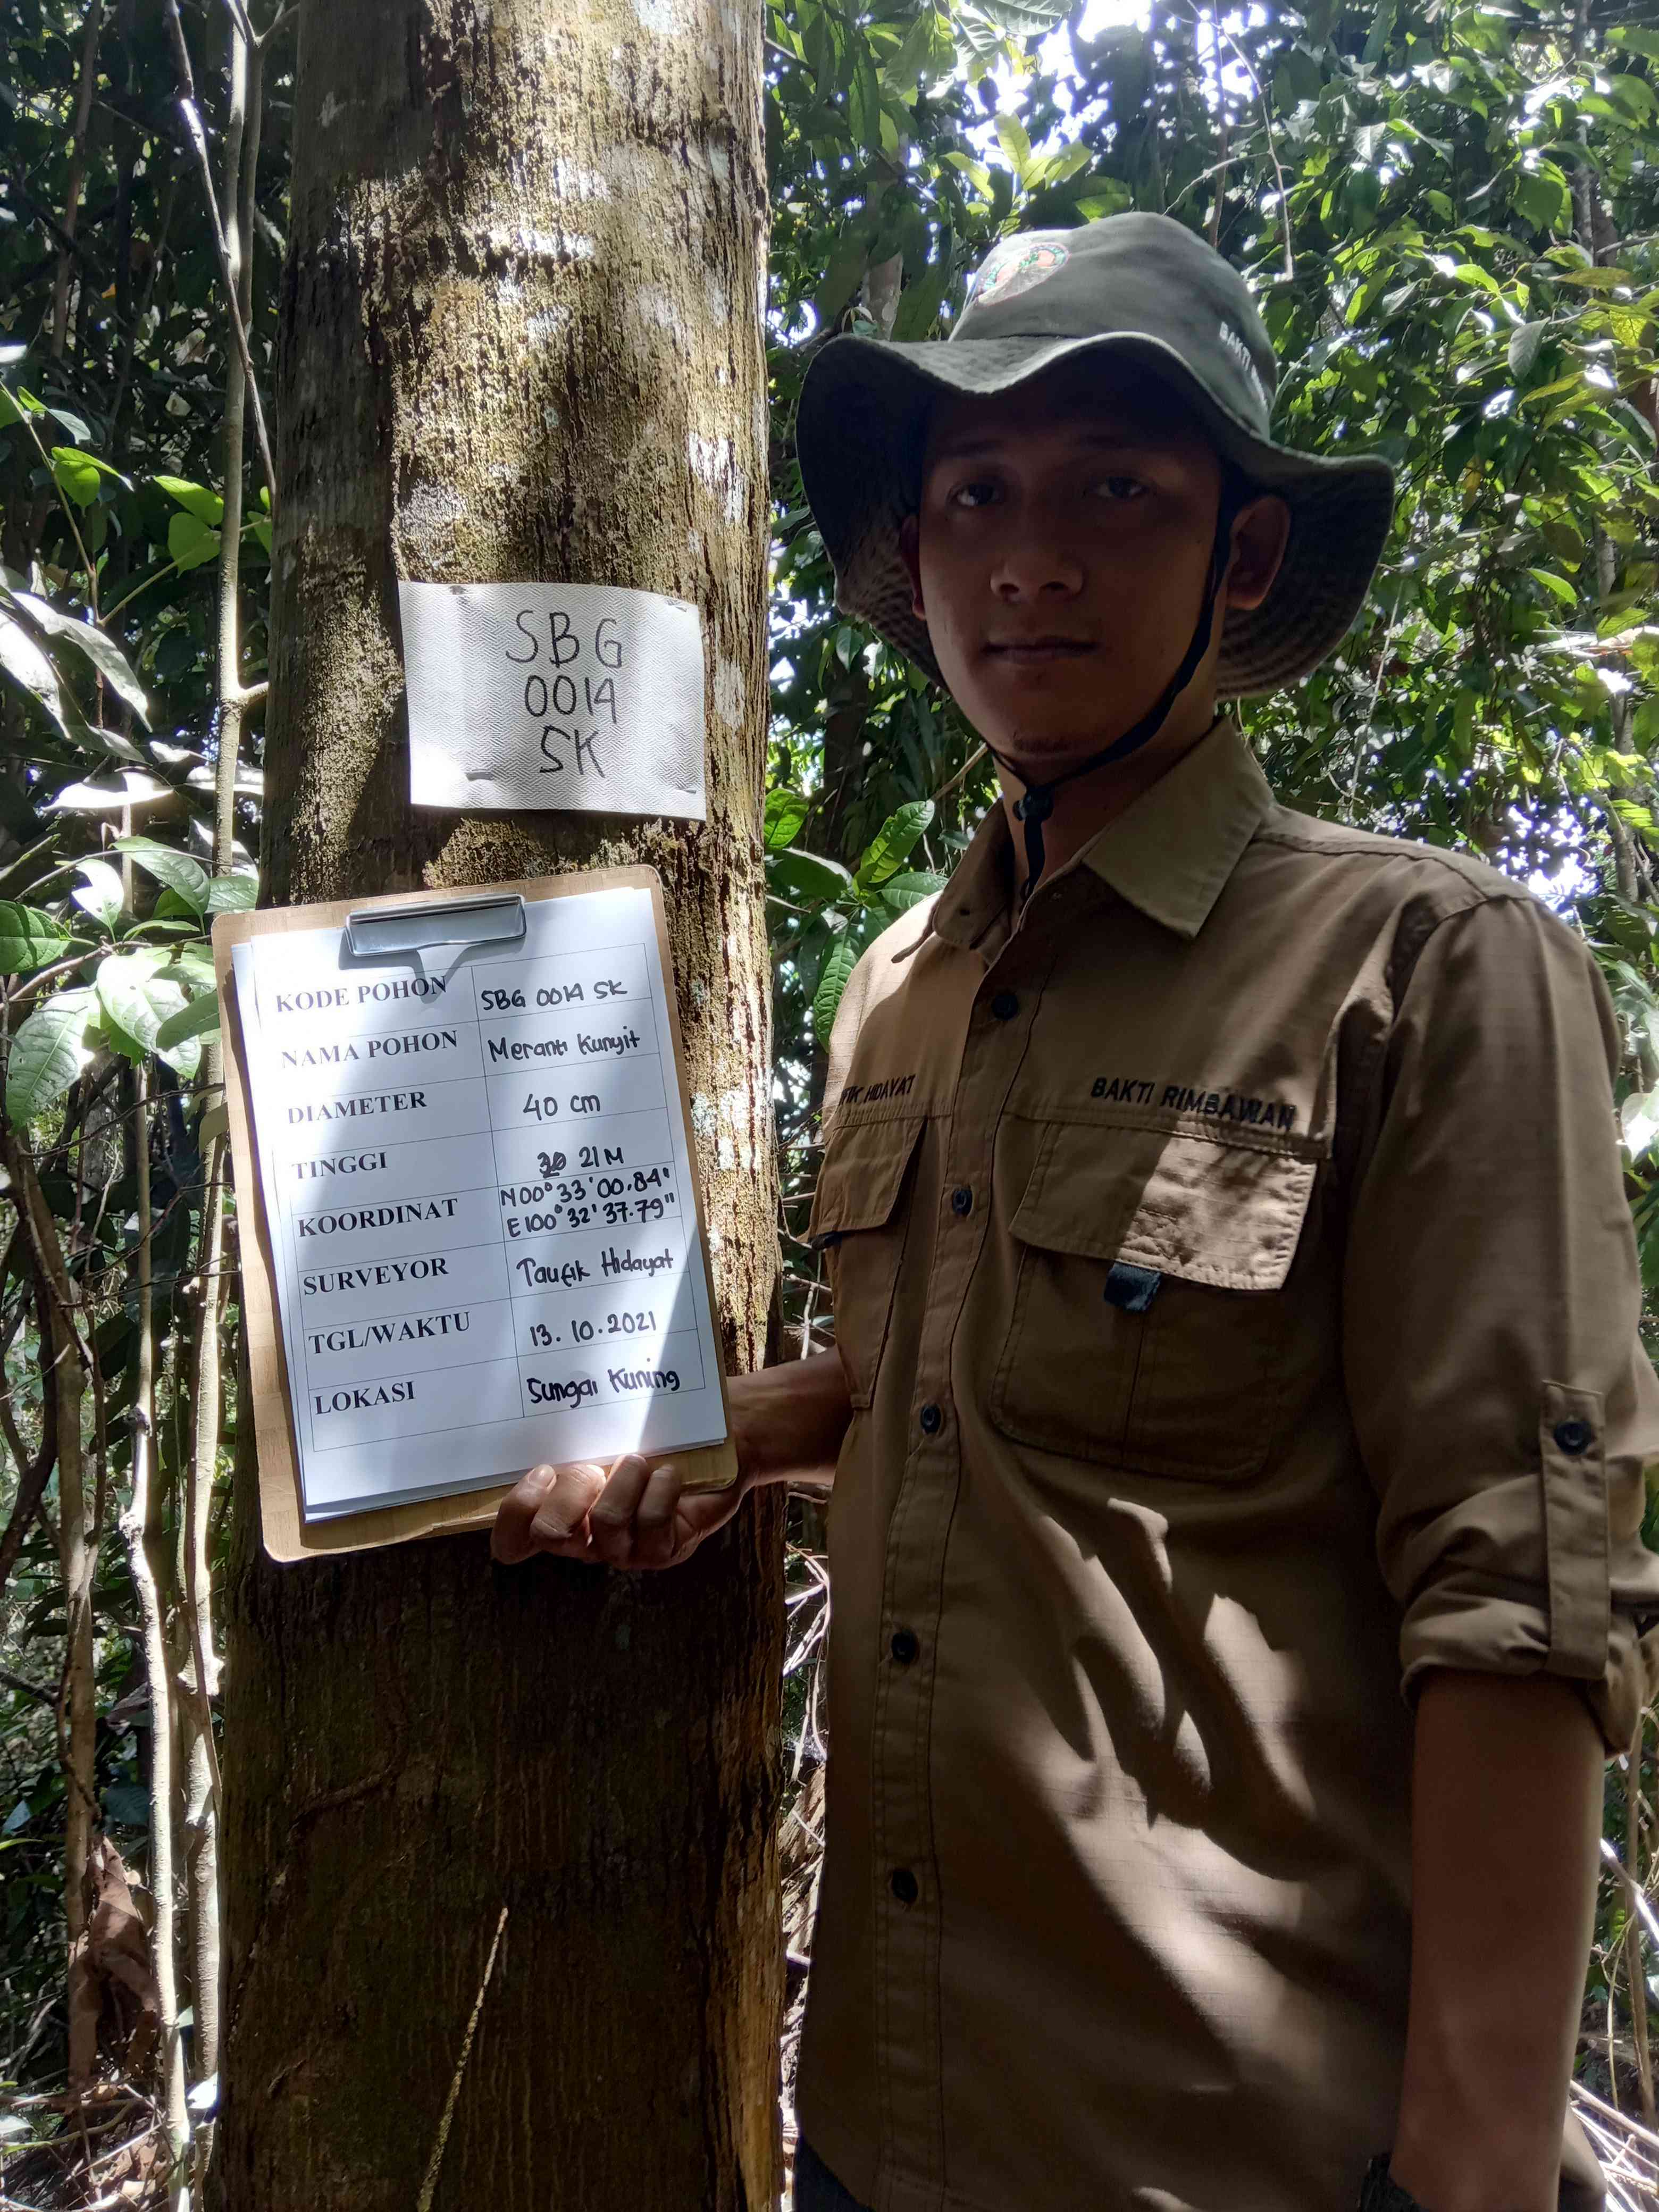 BAKTI
SBG
0014
SK
KODE POHON SBG 0014 SK
NAMA POHON Meranti Kunyit
DIAMETER 40 cm
TINGGI 21 M
KOORDINAT N00°33'00.84'
E100°32'37.79"
SURVEYOR Taufik Hidayat
TGL/WAKTU 13.10.2021
LOKASI Sungai Kuning
HIDAYAT
BAKTI RIMBAWAN